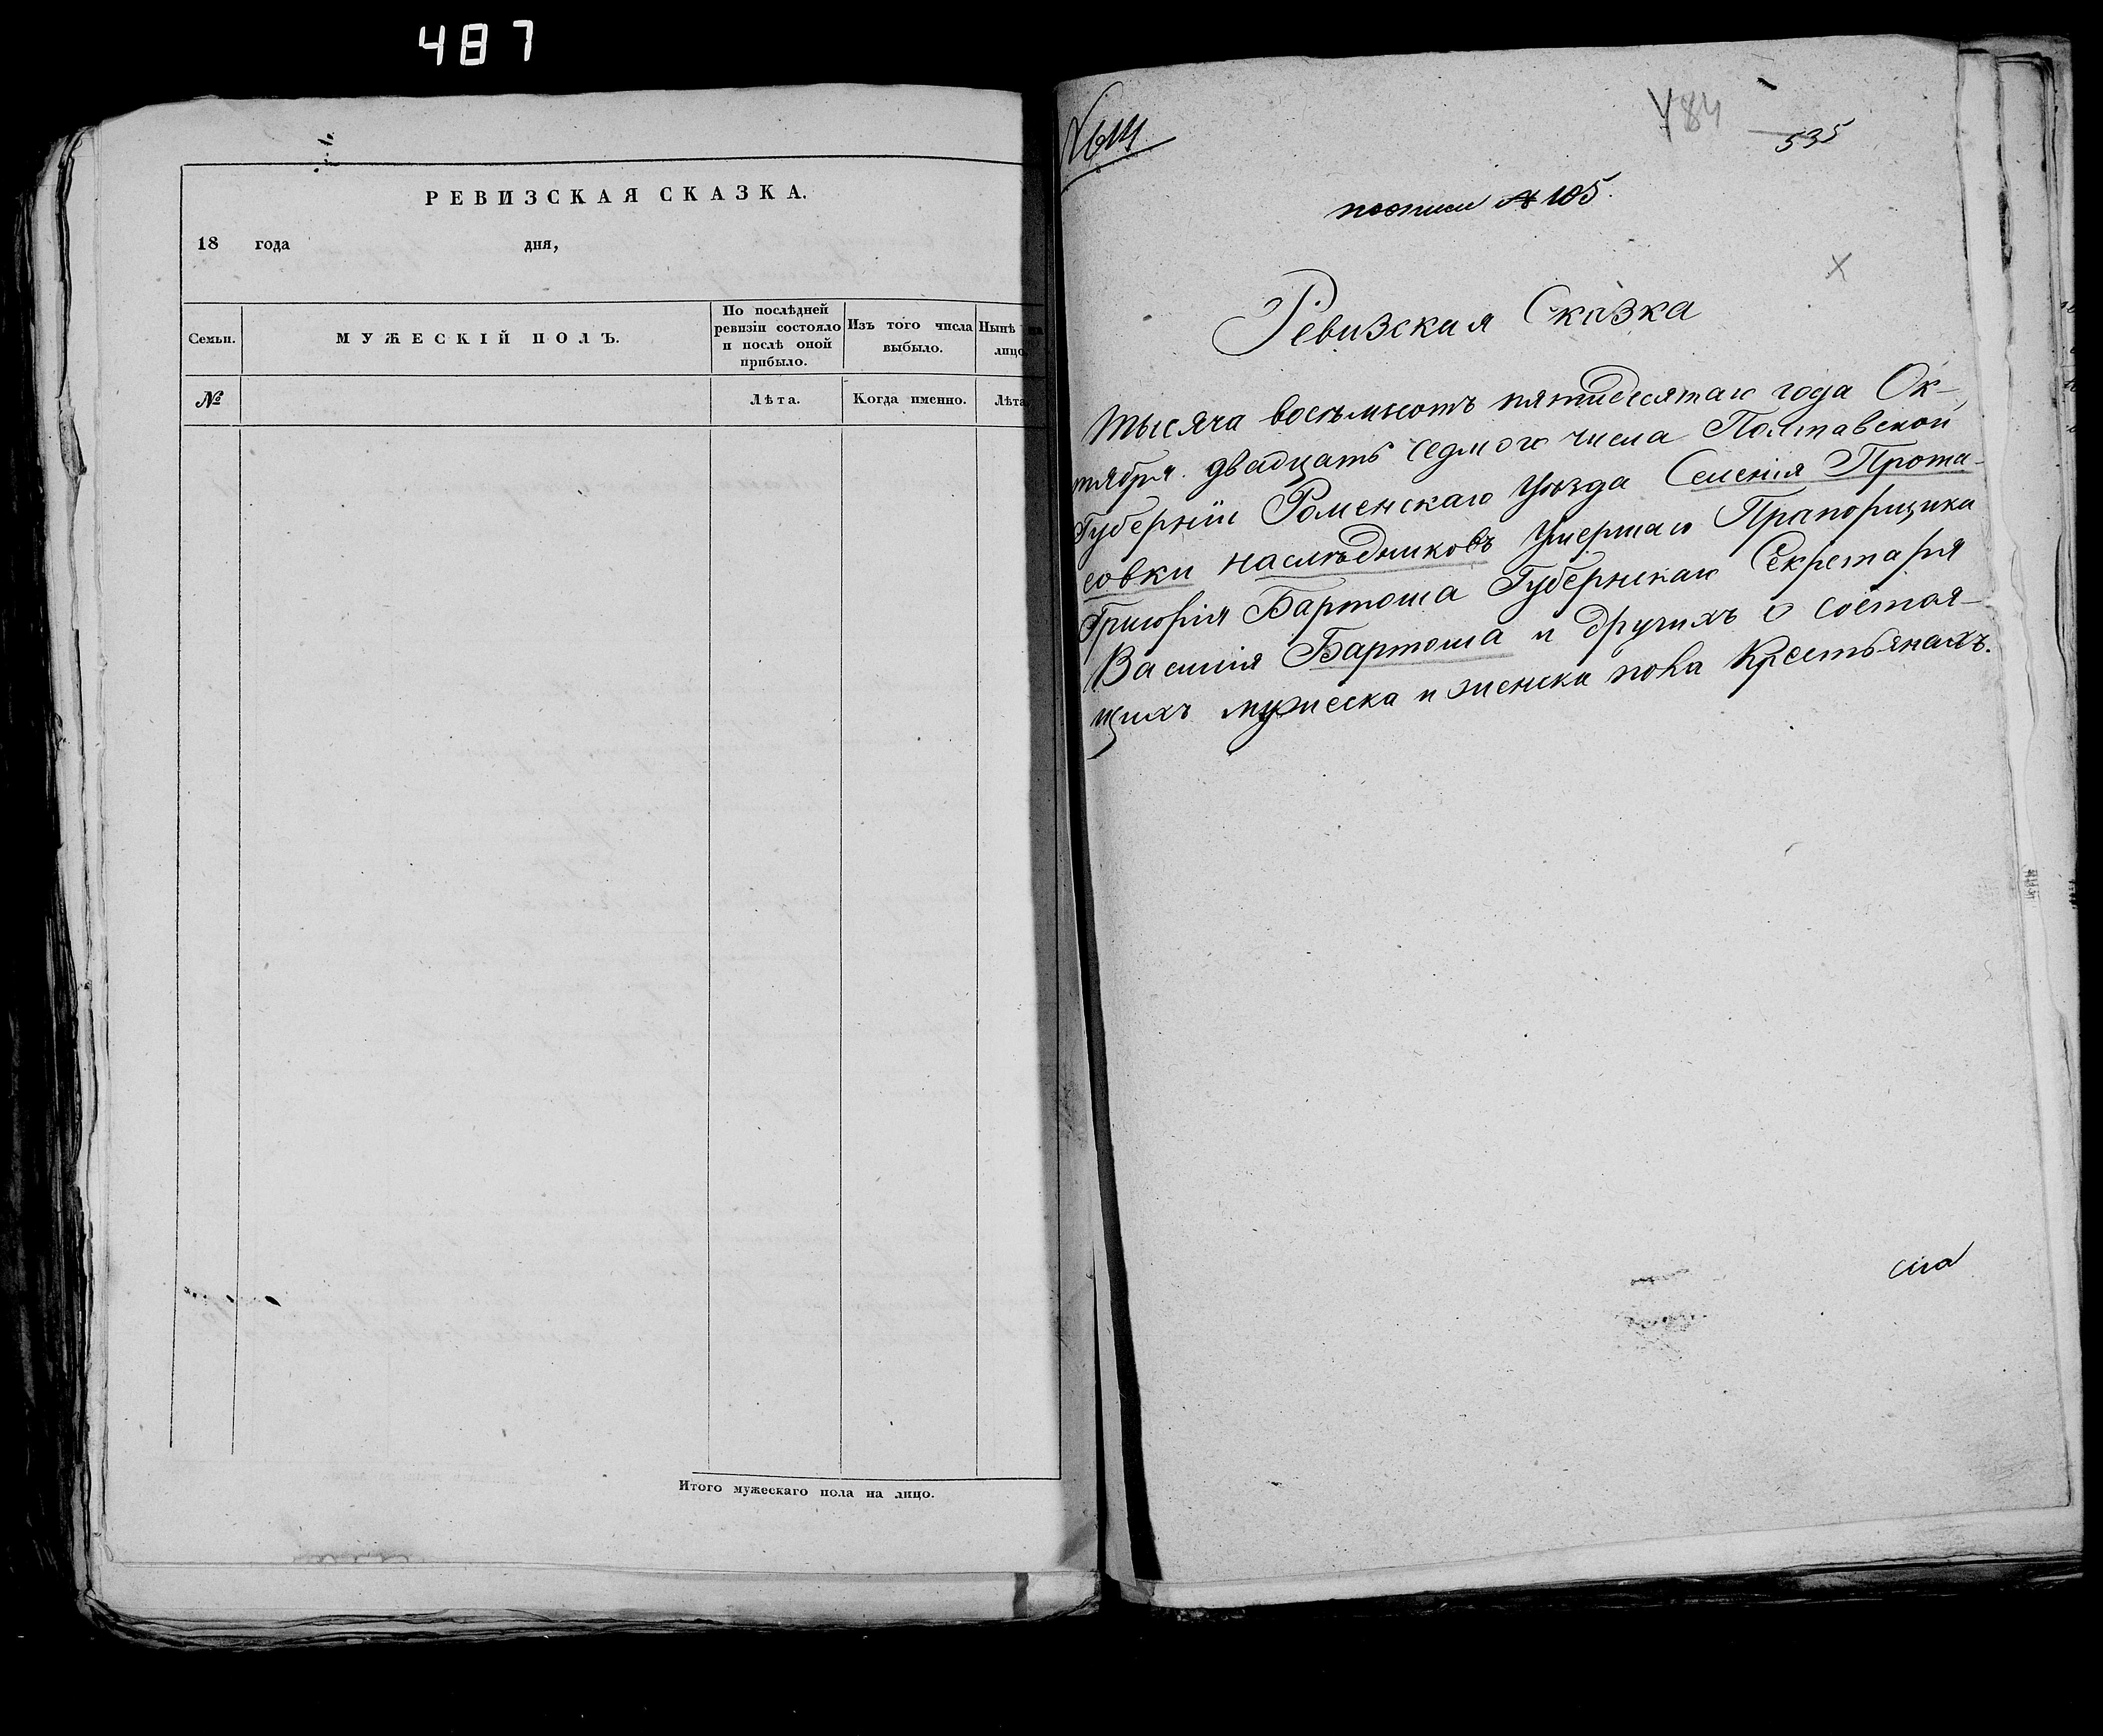 487
РЕВИЗСКАЯ СКАЗКА.
18 года дня,
Семьи.
МУЖЕСКІЙ ПОЛЪ.
По послѣдней
ревизіи состояло
и послѣ оной
прибыло.
Изъ того числа
выбыло.
Нынѣ на
лицо.
№
Лѣта.
Когда именно.
Лѣта
Итого мужескаго пола на лицо.
484
535
по описи № 105.
Ревизская Сказка
тысяча восемьсотъ пятидесятаго года Ок-
тября двадцать седмого числа Полтавской
Губерніи Роменскаго Уѣзда Селенія Прота-
совки наслѣдниковъ Умершаго Прапорщика
Григорія Бартоша Губернскаго Секретаря
Василія Бартоша и другихъ о состоя-
щихъ мужеска и женска пола Крестьянахъ.